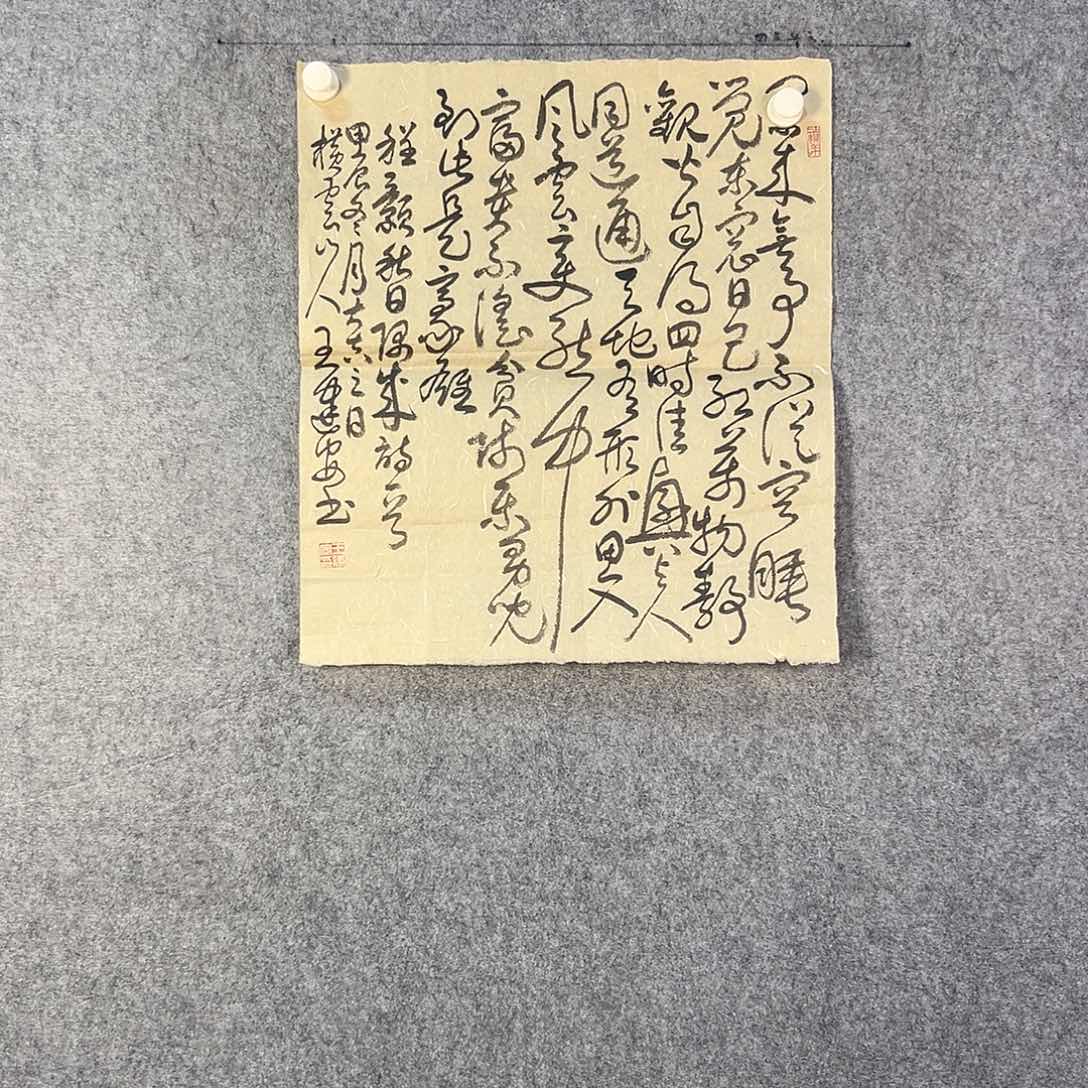 来無事不從容睡
覺東窗日已紅萬物静
觀皆自得四時佳興與人
同道通天地有形外思入
風雲變態中
富貴不淫貧賤樂男兒
到此是豪雄
程顥秋日偶成詩一首
甲辰冬月之日
横雲山人王建安書